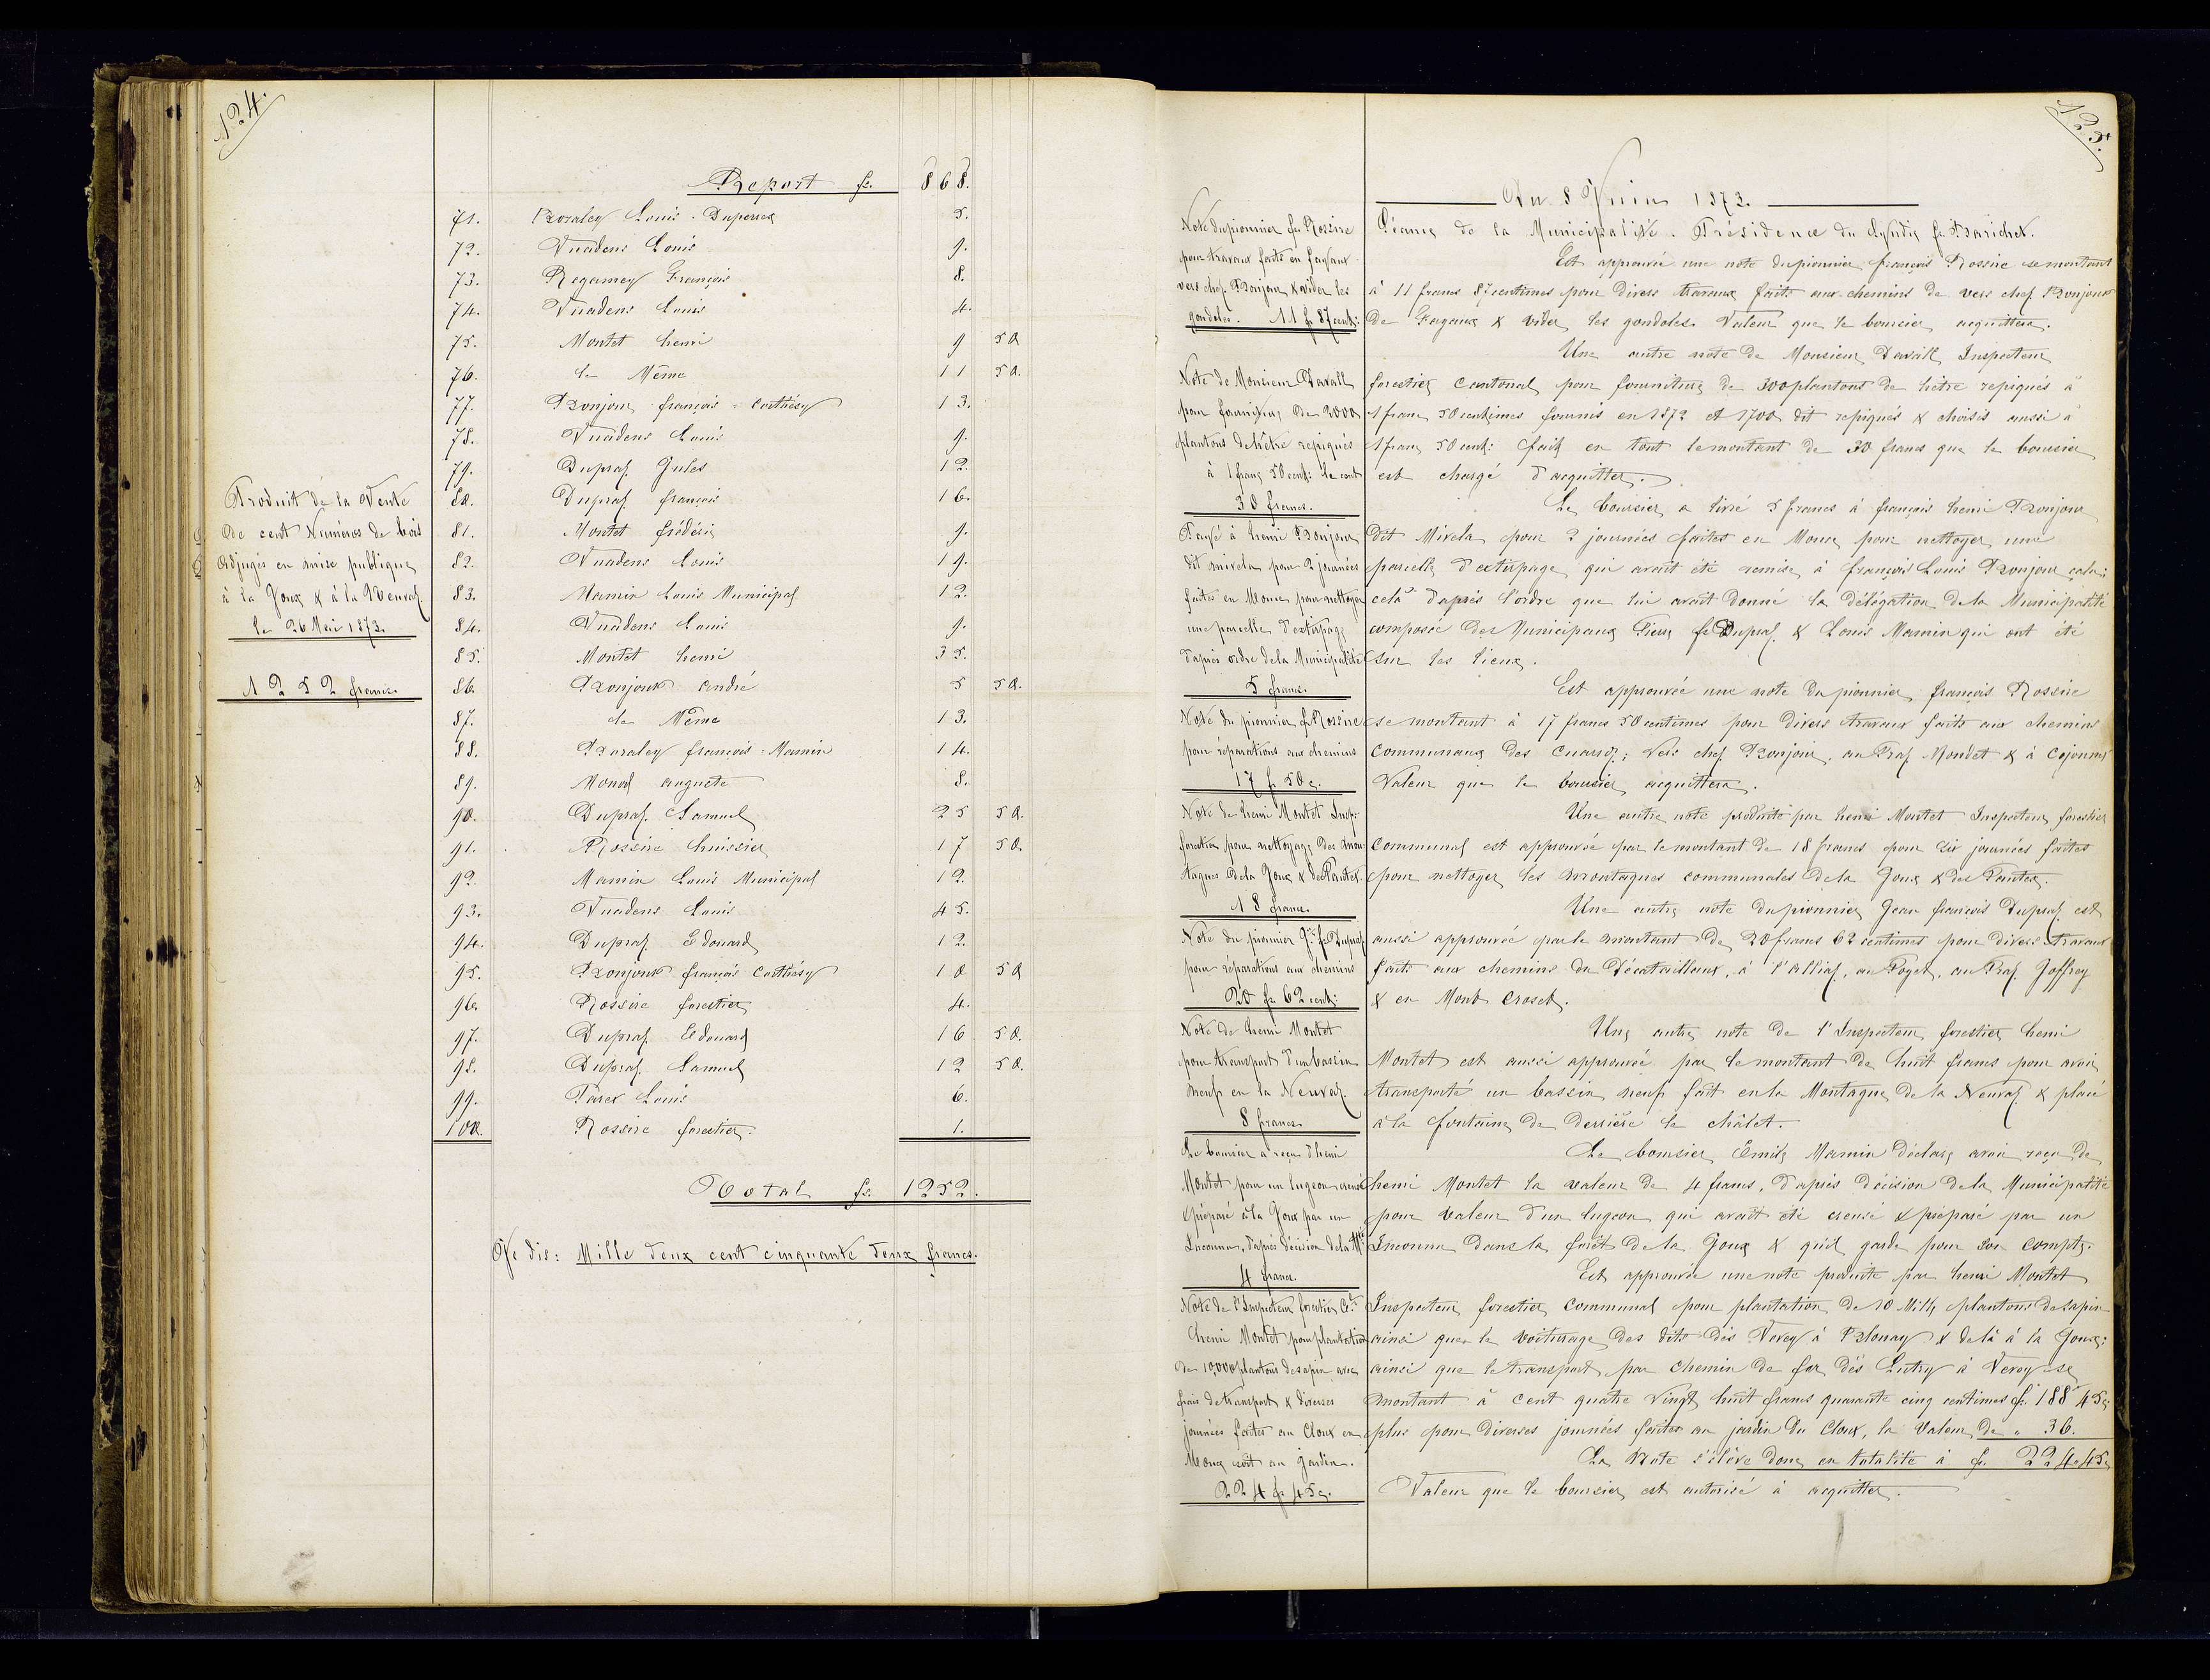 124.
Report fr. 868.
71. Boraley Louis-Duperrex 5.
72. Vuadens Louis 9.
73. Regamey François 8.
74. Vuadens Louis 4.
75. Montet henri 9 50
76. le Même 11 50.
77. Bonjour françois-Corthésy 13.
78. Vuadens Louis 9.
79. Dupraz Jules 12.
80. Dupraz françois 16.
81. Montet frédéric 9.
82. Vuadens Louis 19.
83. Mamin Louis Municipal 12.
84. Vuadens Louis 9.
85. Montet henri 35.
86. Bonjour andré 5 50.
87. le Même 13.
88. Boraley françois-Mamin 14.
89. Monod auguste 8.
90. Dupraz Samuel 25 50.
91. Rossire huissier 17 50.
92. Mamin Louis Municipal 12.
93. Vuadens Louis 45.
94. Dupraz Edouard 12.
95. Bonjour françois Corthésy 10 50
96. Rossire forestier 4.
97. Dupraz Edouard 16 50.
98. Dupraz Samuel 12 50.
99. Parex Louis 6.
100. Rossire forestier. 1.
Total fr. 1252.
Je dis: Mille deux cent cinquante deux francs.
Produit de la Vente
de cent Numéros de bois
adjugés en mise publique
à la Joux & à la Neuvaz.
le 26 Mai 1873.
1252 francs.
125.
Du 8 Juin 1873.
Séance de la Municipalité. Présidence du Syndic fs Barichet.
Est approuvée une note du pionnier françois Rossire se montant
à 11 francs 87 centimes pour divers travaux faits aux chemins de vers chez Bonjour
de Fayaux & vider les gondoles. Valeur que le boursier acquittera.
Une autre note de Monsieur Davall Inspecteur
forestier Cantonal pour fourniture de 300 plantons de hêtre repiqués à
1 franc 50 centimes fournis en 1872 et 1700 dit repiqués & choisis aussi à
1 franc 50 cent: fait en tout le montant de 30 francs que le boursier
est chargé d'acquitter.
Le boursier a livré 5 francs à françois henri Bonjour
dit Mivela pour 2 journées faites en Moucz pour nettoyer une
parcelle d'extirpage qui avait été remise à françois Louis Bonjour
cela d'après l'ordre que lui avait donné la délégation de la Municipalité
composée des Municipaux Pierre fs Dupraz & Louis Mamin qui ont été
sur les lieux.
Est approuvée une note du pionnier françois Rossire
se montant à 17 francs 50 centimes pour divers travaux faits aux chemins
communaux des Cuarroz; vers chez Bonjour, au Praz Mondet & à Cojonnex
Valeur que le boursier acquittera.
Une autre note produite par henri Montet Inspecteur forestier
Communal est approuvée par le montant de 18 francs pour six journées faites
pour nettoyer les montagnes communales de la Joux & des Pautex.
Une autre note du pionnier Jean françois Dupraz est
aussi approuvée par le montant de 20 francs 62 centimes pour divers travaux
faits aux chemins du Décatailloux, à l'Alliaz, au Poyet, au Praz Joffrey
& en Mont Croset.
Une autre note de l'Inspecteur forestier henri
Montet est aussi approuvée par le montant de huit francs pour avoir
transporté un bassin neuf fait en la Montagne de la Neuvaz & placé
à la fontaine de derrière le châlet.
Le boursier Emile Mamin déclare avoir reçu de
henri Montet la valeur de 4 francs, d'après décision de la Municipalité
pour valeur d'un lugeon qui avait été creusé & préparé par un
Inconnu dans la forêt de la Joux & qu'il garde pour son compte.
Est approuvée une note produite par henri Montet
Inspecteur forestier Communal pour plantation de 10 Mille plantons de sapin
ainsi que le voiturage des dits dès Vevey à Blonay & de là à la Joux:
ainsi que le transport par chemin de fer dès Lutry à Vevey se
montant à cent quatre vingt huit francs quarante cinq centimes fr. 188 45c
plus pour diverses journées faites au jardin du Cloux, la Valeur de " 36.
La Note s'élève donc en totalité à fr. 224.45c
Valeur que le boursier est autorisé à acquitter.
Note du pionnier fs Rossire
pour travaux faits en fayaux
vers chez Bonjour & vider les
gondoles. 11 fr 87 cent:
Note de Monsieur Davall
pour fourniture de 2000
plantons de hêtre repiqués
à 1 franc 50 cent: le cent
30 francs.
Payé à henri Bonjour
dit mivela pour 2 journées
faites en Moucz pour nettoyer
une parcelle d'extirpage
d'après ordre de la Municipalité
5 francs.
Note du pionnier fs Rossire
pour réparations aux chemins
17 f 50c.
Note de henri Montet Insp:
forestier pour nettoyage des mon-
tagnes de la Joux & des Pautex.
18 francs.
Note du pionnier Jn fs Dupraz
pour réparations aux chemins
20 fr 62 cent:
Note de henri Montet
pour transport d'un bassin
neuf en la Neuvaz.
8 francs.
Le boursier a reçu d'henri
Montet pour un lugeon creusé
& préparé à la Joux par un
Inconnu, d'après décision de la Mté:
4 francs.
Note de l'Inspecteur forestier Cl
henri Montet pour plantation
de 10,000 plantons de sapin avec
frais de transport & diverses
journées faites au Cloux en
Moucz soit au Jardin.
224 fr 45c.